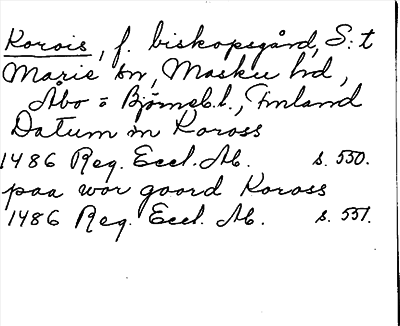 Korois, f. biskopsgård, S:t
Marie sn, Masku hd,
Åbo = Björneb. l., Finland
Datum in Koross
1486 Reg. Eccl. Ab. s. 550.
paa wor goord Koross
1486 Reg. Eccl. Ab. s. 551.